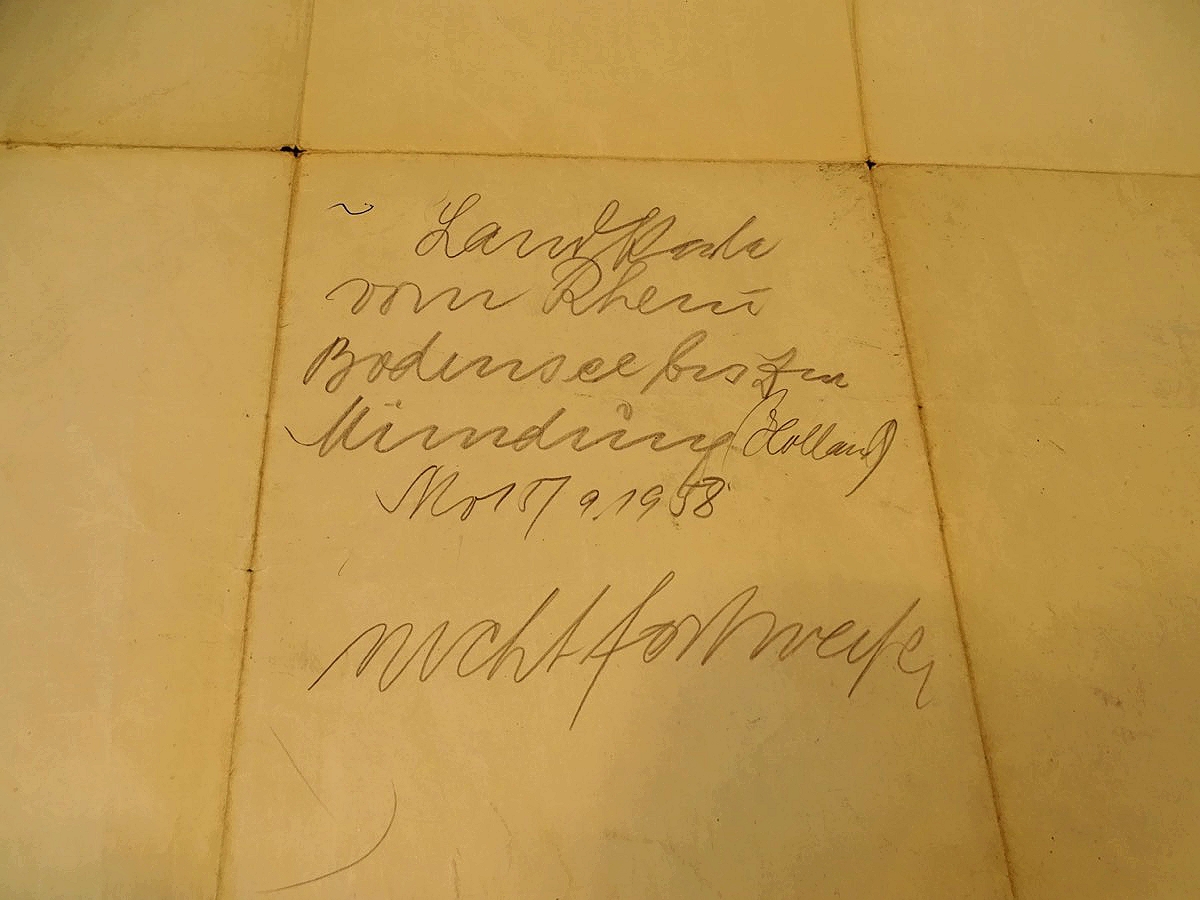 Landkarte
vom Rhein
Bodensee bis zur
Mündung (Holland)
Mo 15/9.1958
nicht fortwerfen